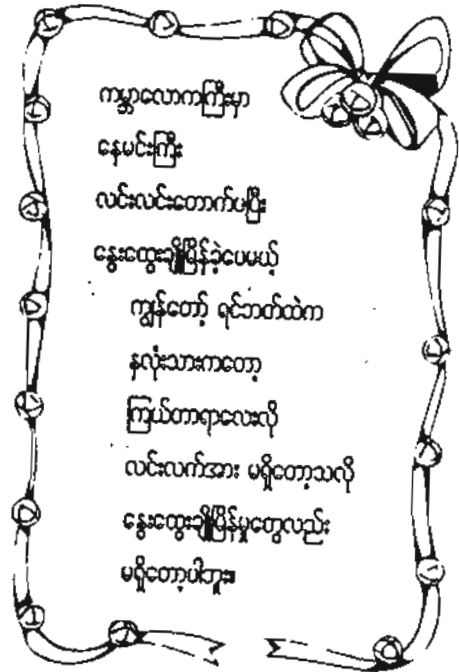 ကမ္ဘာလောကကြီးမှာ
နေမင်းကြီး
လင်းလင်းတောက်ပပြီး
နွေးထွေးချိုမြိန်ခဲ့ပေမယ့်
ကျွန်တော့် ရင်ဘတ်ထဲက
နှလုံးသားကတော့
ကြယ်တာရာလေးလို
လင်းလက်အား မရှိတော့သလို
နွေးထွေးချိုမြိန်မှုတွေလည်း
မရှိတော့ပါဘူး။